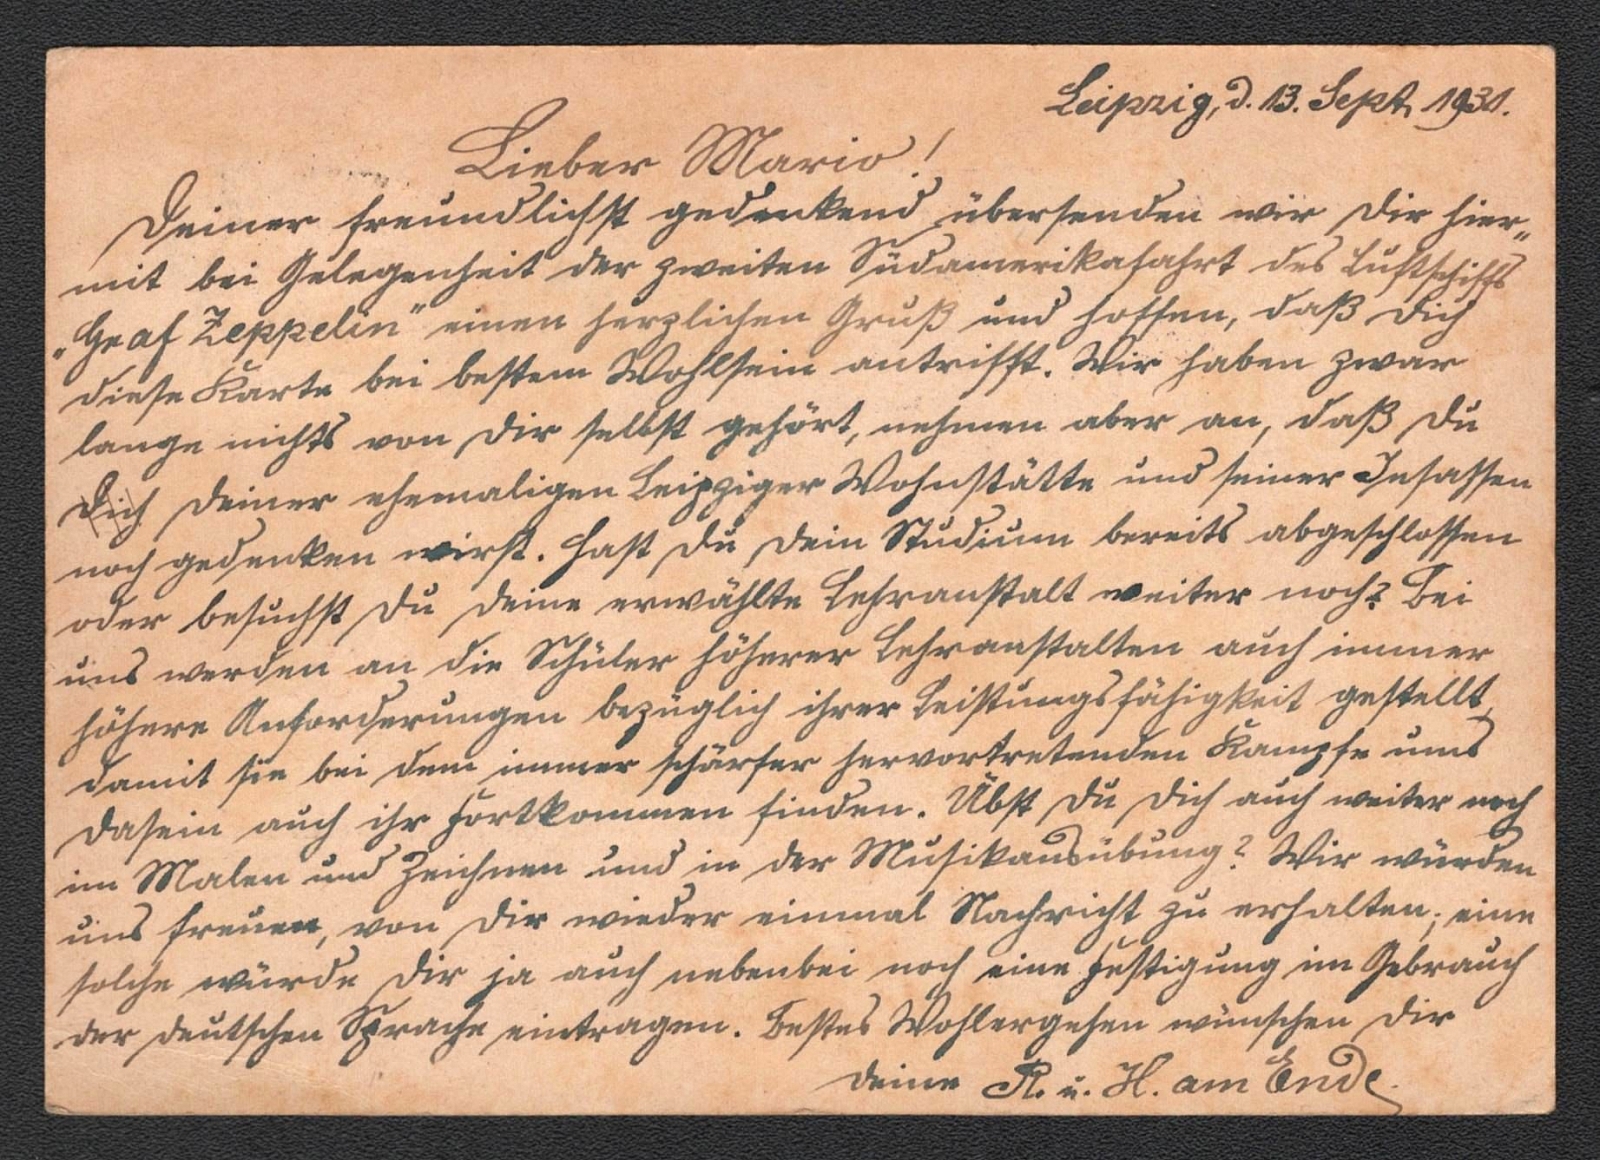 Leipzig, d. 13. Sept. 1931.
Lieber Mario!
Deiner freundlichst gedenkend übersenden wir Dir hier„
mit bei Gelegenheit der zweiten Südamerikafahrt des Luftschiffs
„Graf Zeppelin" einen herzlichen Gruß und hoffen, daß Dich
diese Karte bei bestem Wohlsein antrifft. Wir haben zwar
lange nichts von Dir selbst gehört, nehmen aber an, daß Du
Dich Deiner ehemaligen Leipziger Wohnstätte und seiner Insassen
noch gedenken wirst. Hast Du Dein Studium bereits abgeschlossen
oder besuchst Du Deine erwählte Lehranstalt weiter noch? Bei
uns werden an die Schüler höherer Lehranstalten auch immer
höhere Anforderungen bezüglich ihrer Leistungsfähigkeit gestellt,
damit sie bei dem immer schärfer hervortretenden Kampfe ums
Dasein auch ihr Fortkommen finden. Übst Du Dich auch weiter noch
im Malen und Zeichnen und in der Musikausübung? Wir würden
uns freuen, von Dir wieder einmal Nachricht zu erhalten; eine
solche würde Dir ja auch nebenbei noch eine Festigung im Gebrauch
der deutschen Sprache eintragen. Bestes Wohlergehen wünschen Dir
Deine R. u. H. am Ende